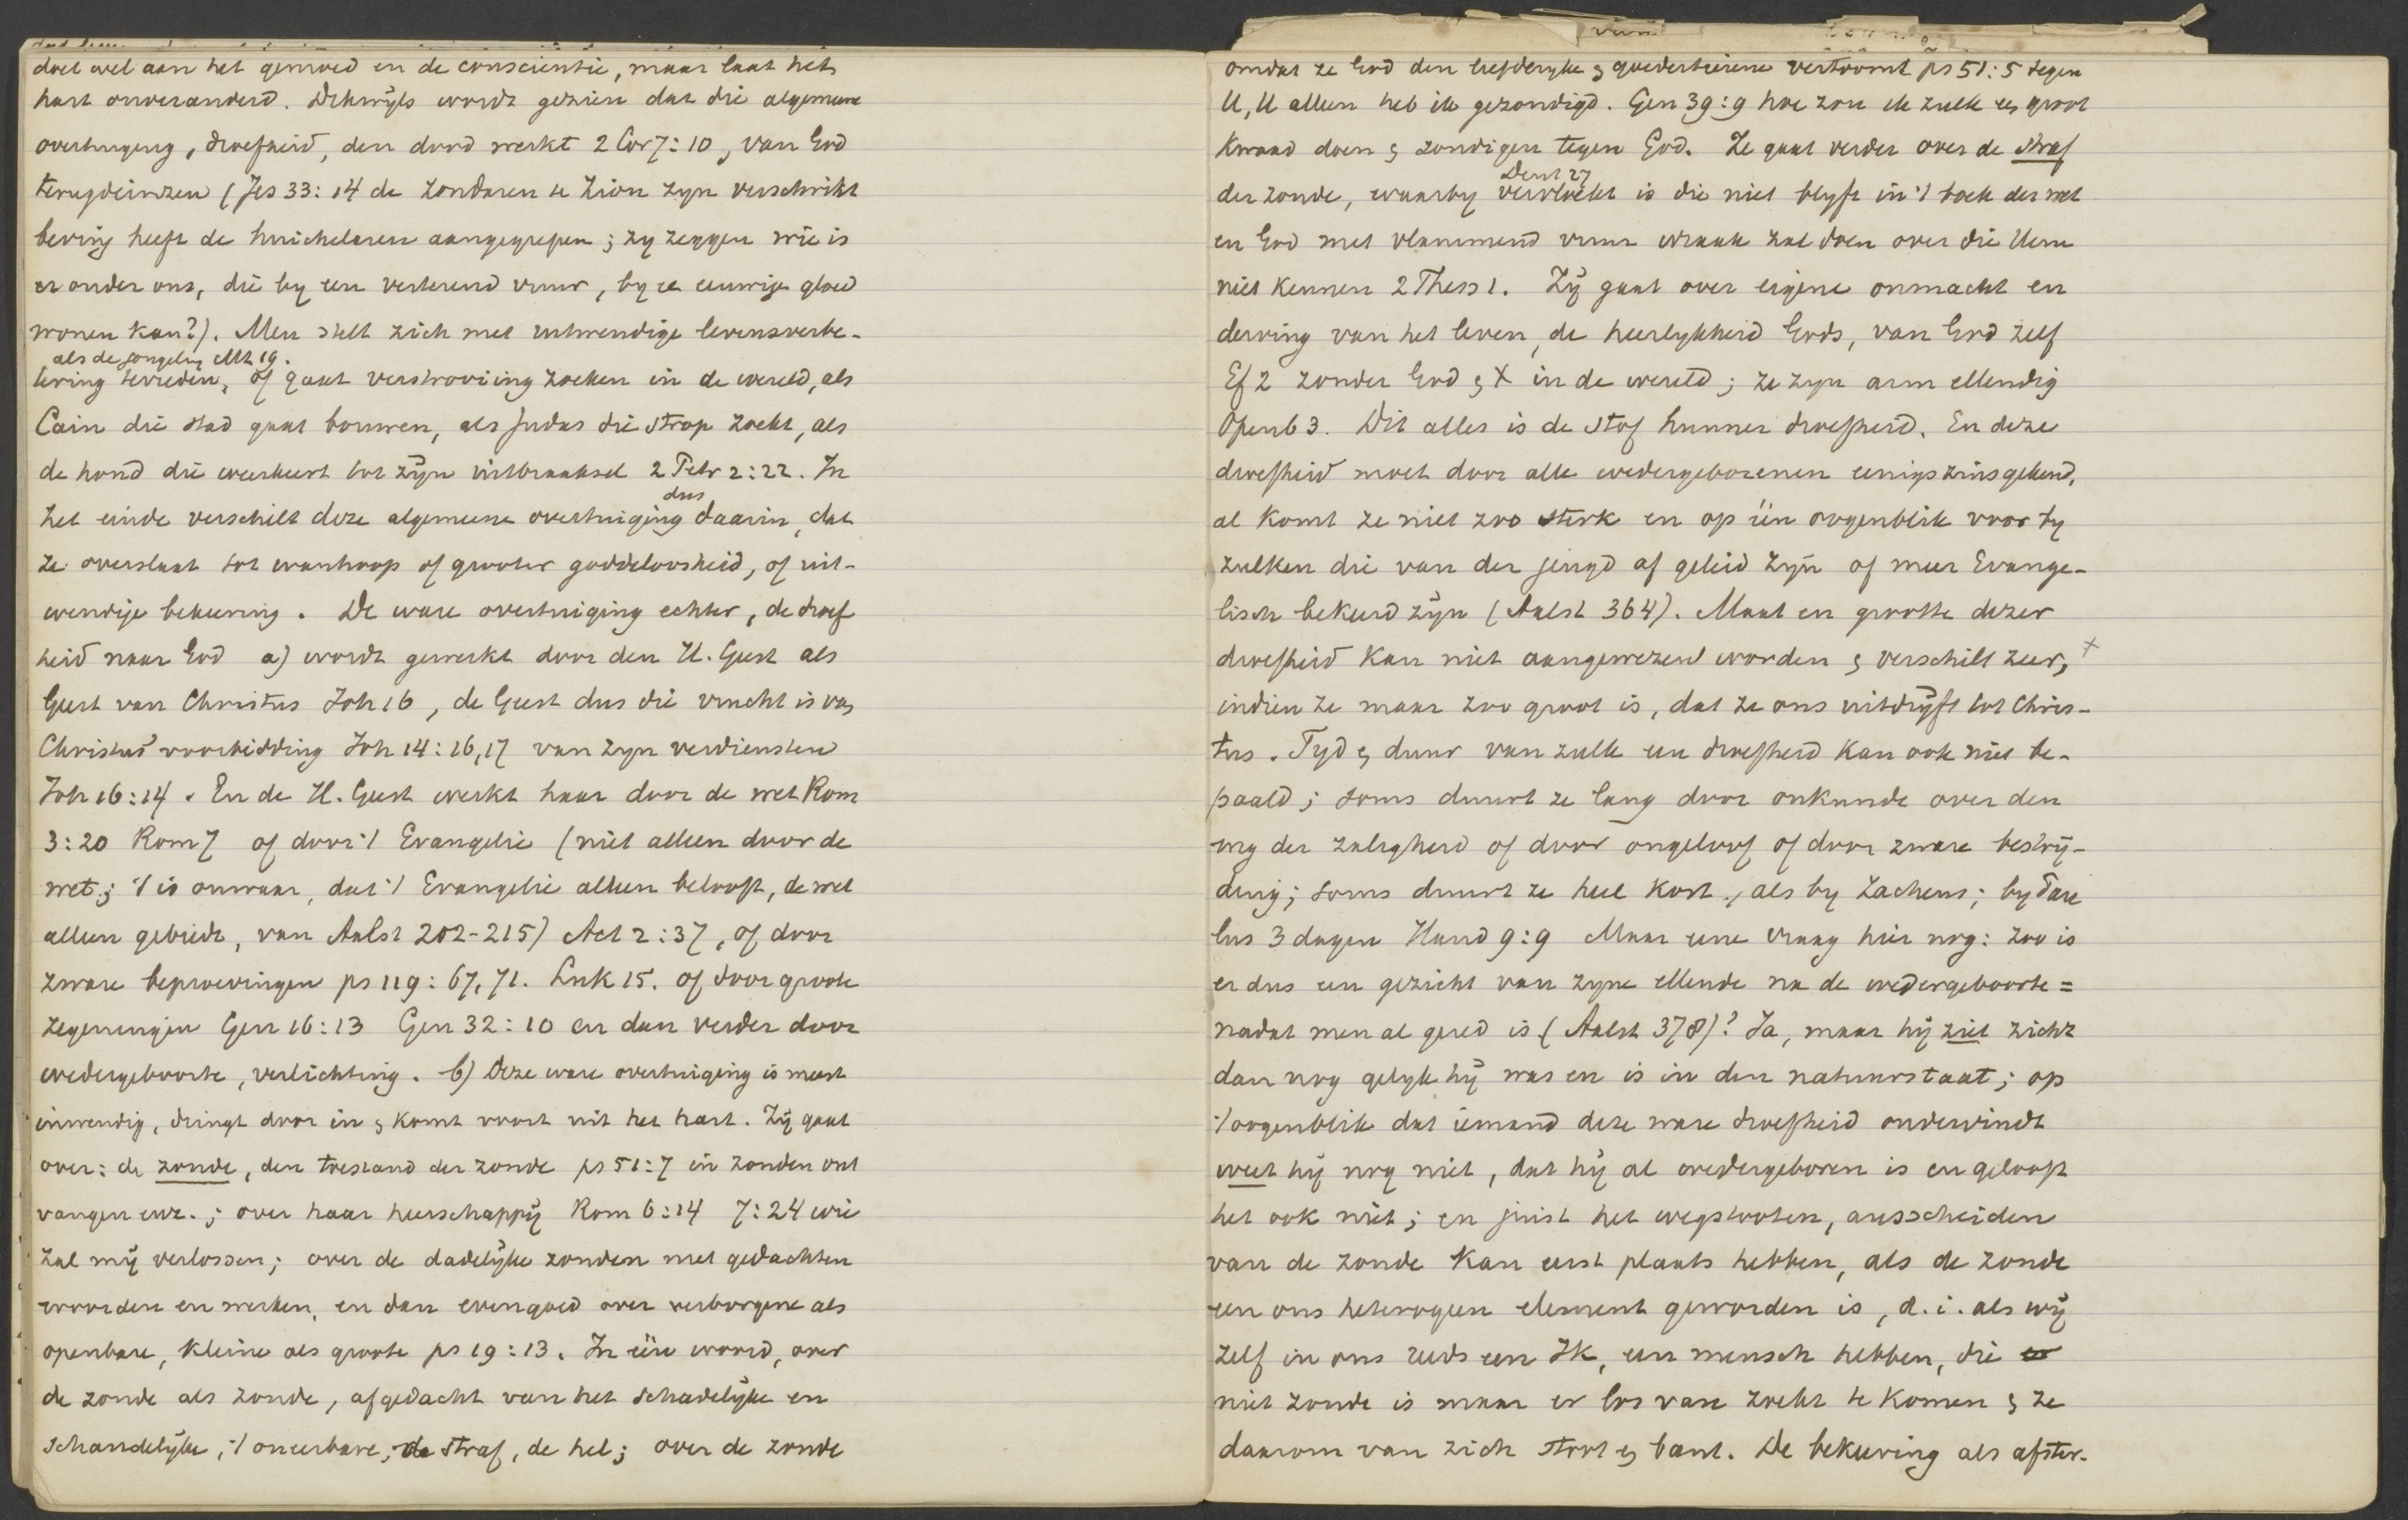 doet wel aan het gemoed en de conscientie, maar laat het
hart onveranderd. Dikwijls wordt gezien dat die algemeene
overtuiging, droefheid, den dood werkt 2 Cor 7:10, van God
terugdeinzen (Jes 33:14 de zondaren te Zion zyn verschrikt
beving heeft de huichelaren aangegrepen; zy zeggen wie is
er onder ons, die by een verterend vuur, by ee eeuwige gloed
wonen kan?). Men stelt zich met uitwendige levensverbe-
als de jongeling Mt 19.
tering tevreden, of gaat verstrooiing zoeken in de wereld, als
Cain die stad gaat bouwen, als Judas die strop zoekt, als
de hond die weerkeert tot zijn uitbraaksel 2 Petr 2:22. In
dus
het einde verschilt deze algemeene overtuiging daarin, dat
ze overslaat tot wanhoop of grooter goddeloosheid, of uit-
wendige bekeering. De ware overtuiging echter, de droef
heid naar God a) wordt gewerkt door den H. Geest als
Geest van Christus Joh 16, de Geest dus die vrucht is van
Christus' voorbidding Joh 14:16,17 van zyn verdiensten
Joh 16:14. En de H. Geest werkt haar door de wet Rom
3:20 Rom 7 of door 't Evangelie (niet alleen door de
wet; 't is onwaar, dat 't Evangelie alleen belooft, de wet
alleen gebiedt, van Aalst 202-215) Act 2:37, of door
zware beproevingen ps 119:67,71. Luk 15. of door groote
zegeningen Gen 16:13 Gen 32:10 en dan verder door
wedergeboorte, verlichting. b) Deze ware overtuiging is meest
inwendig, dringt door in & komt voort uit het hart. Zij gaat
over: de zonde, den toestand der zonde ps 51:7 in zonden ont
vangen enz.; over haar heerschappij Rom 6:14 7:24 wie
zal mij verlossen; over de dadelijke zonden met gedachten
woorden en werken, en dan evengoed over verborgene als
openbare, kleine als groote ps 19:13. In één woord, over
de zonde als zonde, afgedacht van het schadelijke en
schandelijke, 't oneerbare, de straf, de hel; over de zonde
omdat ze God den liefderyke & goedertierene vertoornt ps 51:5 tegen
U, U alleen heb ik gezondigd. Gen 39:9 hoe zou ik zulk een groot
kwaad doen & zondigen tegen God. Ze gaat verder over de straf
Deut 27
der zonde, waarby vervloekt is die niet blyft in 't boek der wet
en God met vlammend vuur wraak zal doen over die Hem
niet kennen 2 Thess 1. Zij gaat over eigene onmacht en
derving van het leven, de heerlykheid Gods, van God zelf
Ef 2 zonder God & X in de wereld; ze zyn arm ellendig
Openb 3. Dit alles is de stof hunner droefheid. En deze
droefheid moet door alle wedergeborenen eenigszins gekend,
al komt ze niet zoo sterk en op één oogenblik voor by
zulken die van der jeugd af geleid zijn of meer Evange-
lisch bekeerd zijn (Aalst 364). Maat en grootte dezer
droefheid kan niet aangewezen worden & verschilt zeer, +
indien ze maar zoo groot is, dat ze ons uitdrijft tot Chris-
tus. Tyd & duur van zulk een droefheid kan ook niet be-
paald; soms duurt ze lang door onkunde over den
weg der zaligheid of door ongeloof of door zware bestrij-
ding; soms duurt ze heel kort, als by Zacheus; by Pau
lus 3 dagen Hand 9:9 Maar eene vraag hier nog: zoo is
er dus een gezicht van zyne ellende na de wedergeboorte =
nadat men al gered is (Aalst 378)? Ja, maar hij ziet zicht
dan nog gelyk hij was en is in den natuurstaat; op
't oogenblik dat iemand deze ware droefheid ondervindt
weet hij nog niet, dat hij al wedergeboren is en gelooft
het ook niet; en juist het wegstooten, ausscheiden
van de zonde kan eerst plaats hebben, als de zonde
een ons heterogeen element geworden is, d.i. als wij
zelf in ons reeds een Ik, een mensch hebben, die
niet zonde is maar er los van zoekt te komen & ze
daarom van zich stoot & bant. De bekeering als afster-